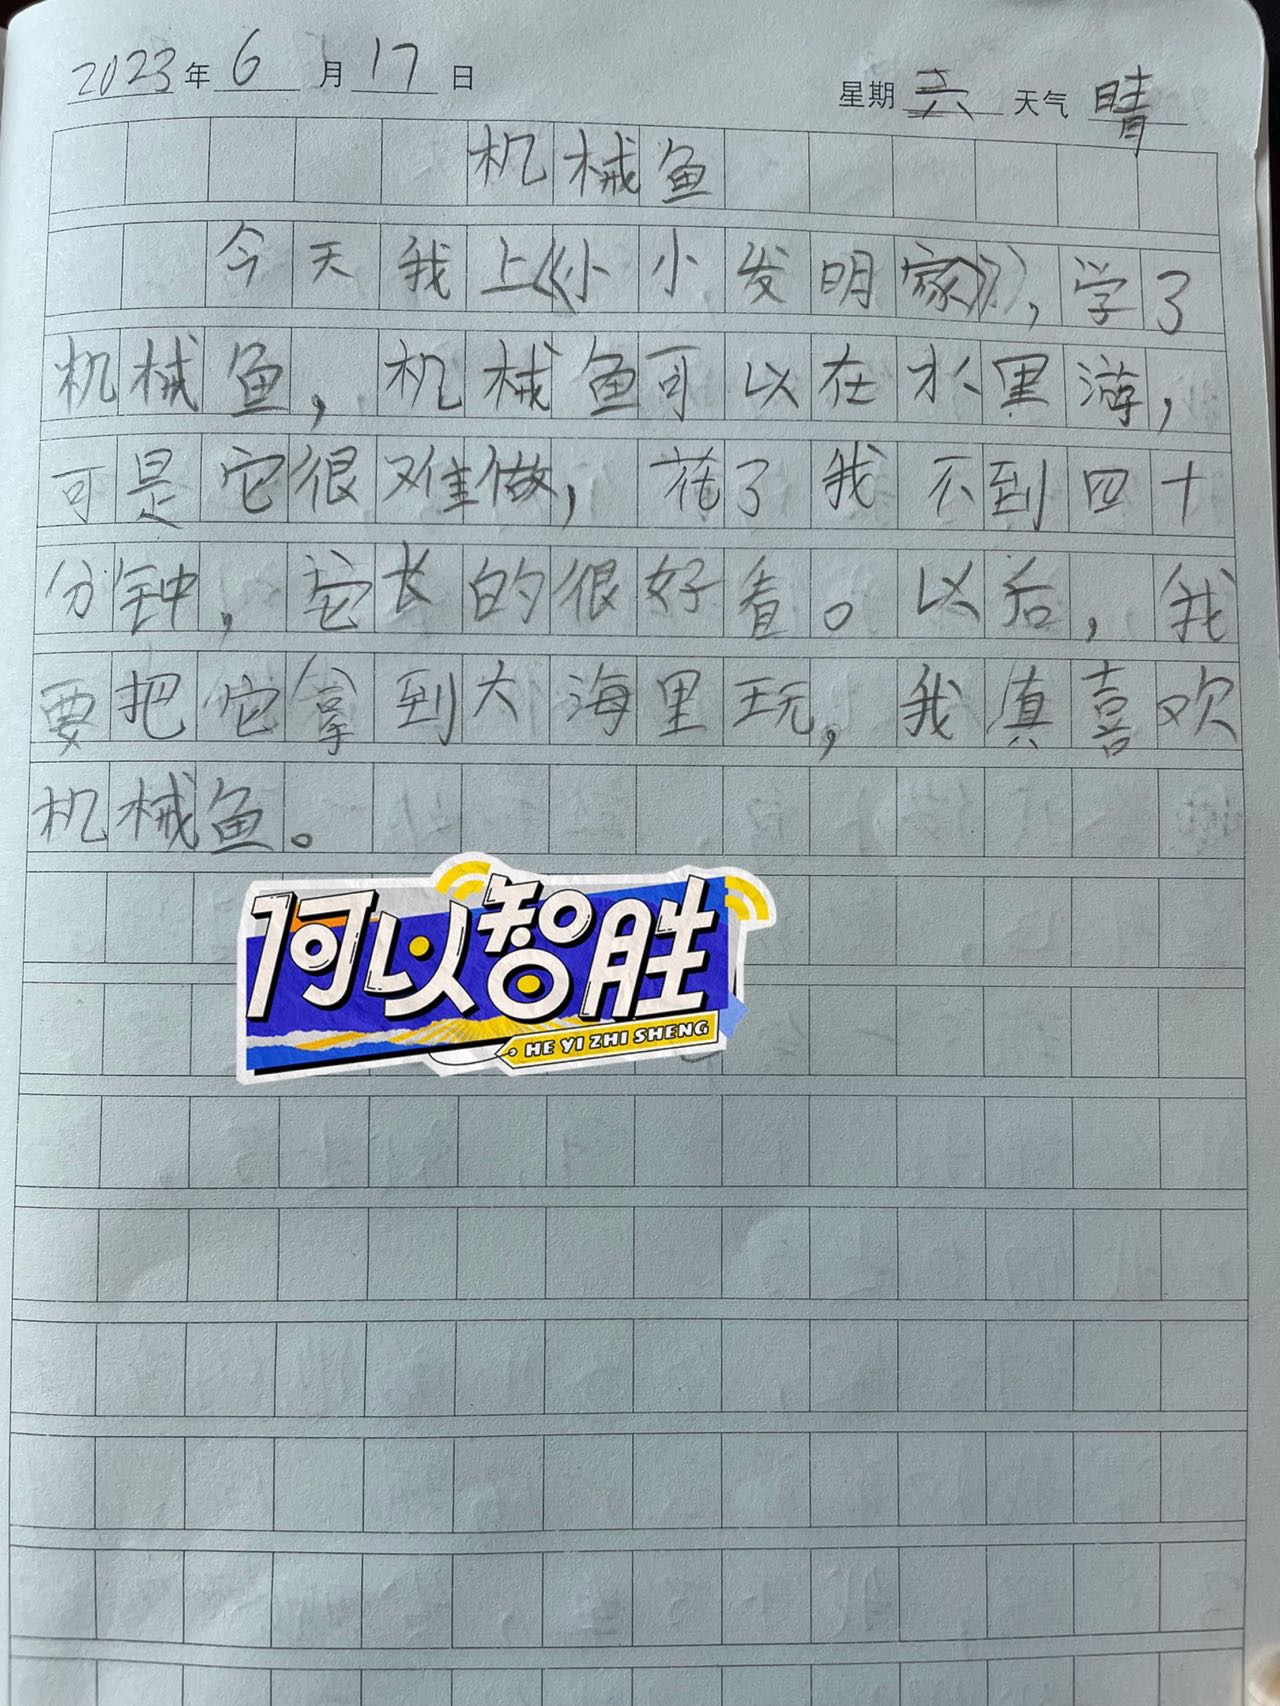 2023年6月17日 星期六 天气 晴
机械鱼
今天我上《小小发明家》,学了
机械鱼,机械鱼可以在水里游,
可是它很难做,花了我不到四十
分钟,它长的很好看。以后,我
要把它拿到大海里玩,我真喜欢
机械鱼。
何以智胜
HE YI ZHI SHENG